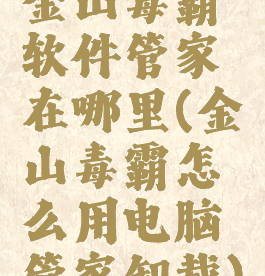 金山毒霸
软件管家
在哪里(金
山毒霸怎
么用电脑
管家卸载)